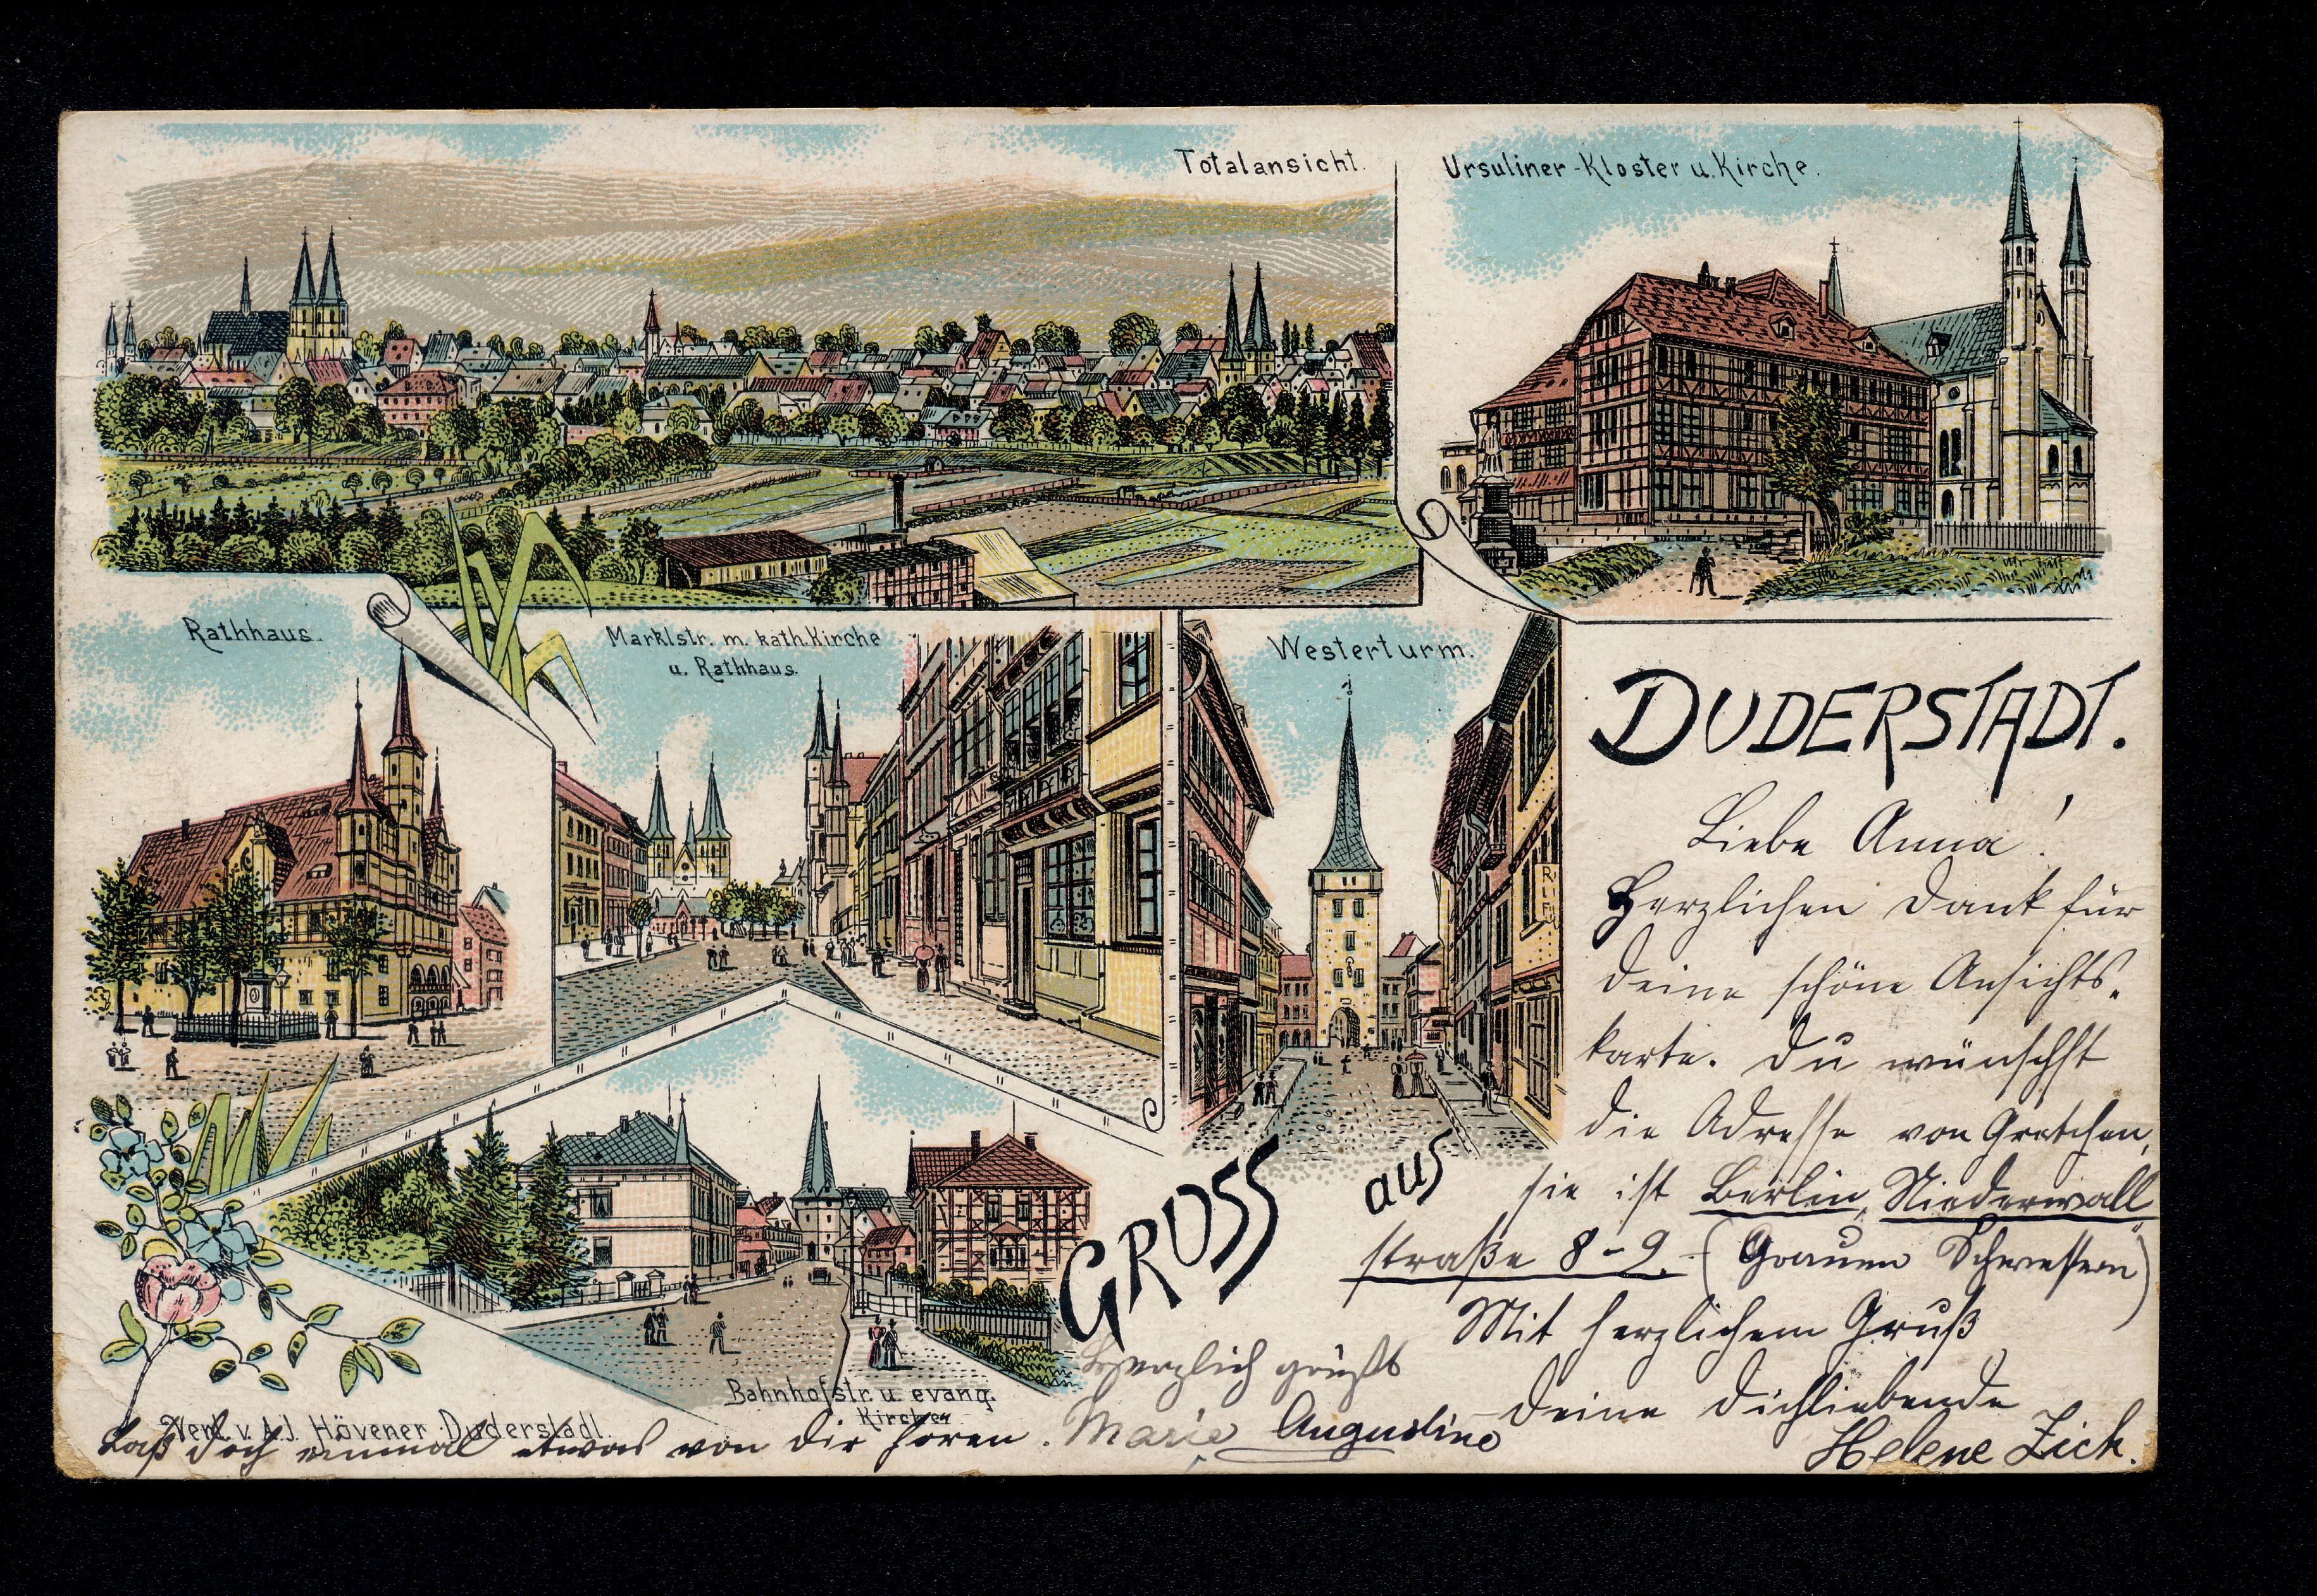 Totalansicht.
Ursuliner-Kloster u. Kirche.
Rathhaus.
Marktstr. m. kath. Kirche
u. Rathhaus.
Westerturm.
Bahnhofstr. u. evang.
Kirche
Verl. v. A. J. Hövener Duderstadt.
GRUSS aus
DUDERSTADT.
Liebe Anna!
Herzlichen Dank für
deine schöne Ansichts-
karte. Du wünschst
die Adresse von Gretchen,
sie ist Berlin, Niederwall
straße 8-9. (Grauen Schwestern)
Mit herzlichem Gruß
deine dichliebende
Helene Zick.
Herzlich grüßt
Marie Augustine
Laß doch einmal etwas von dir hören.